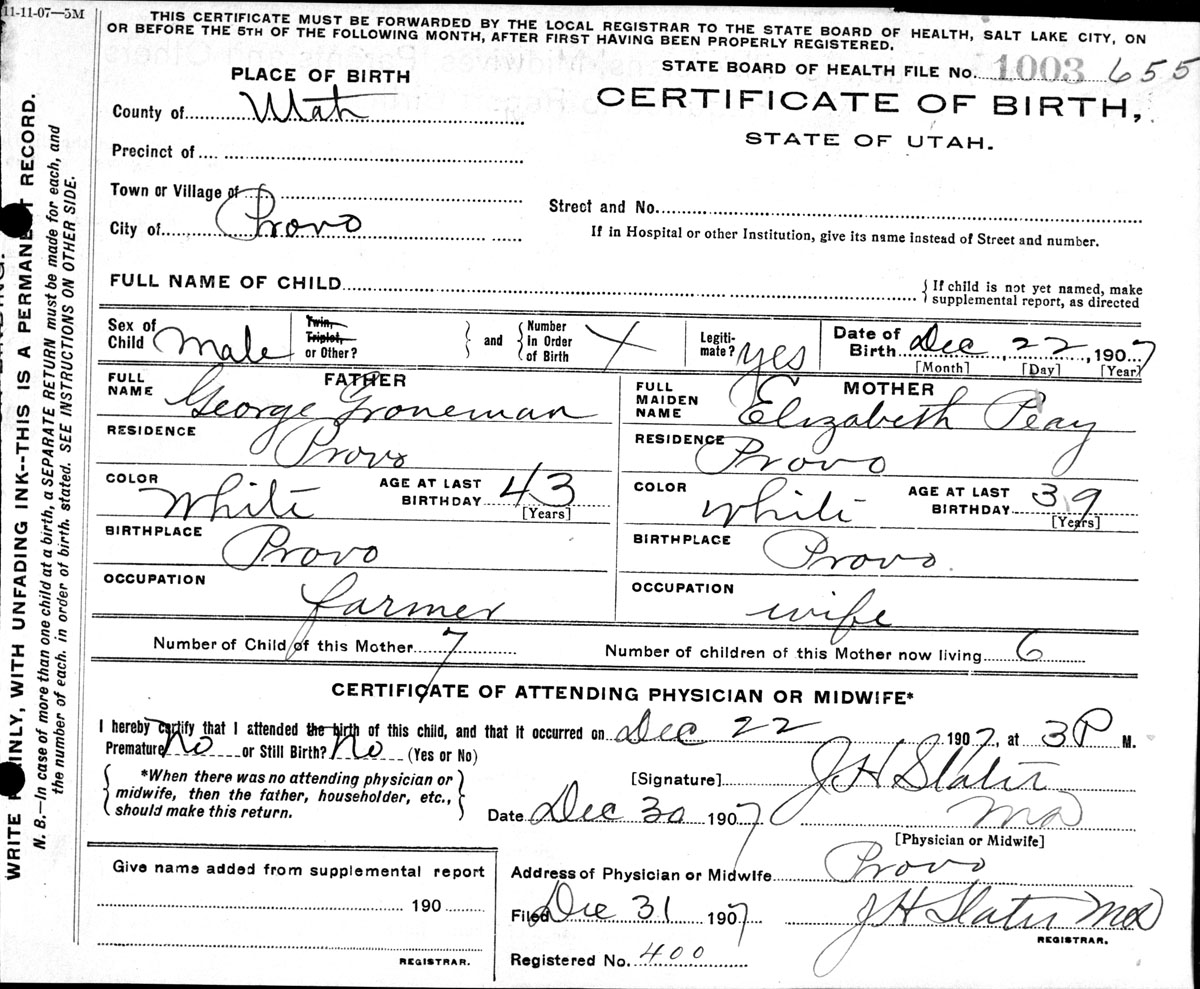 11-11-07—5M
THIS CERTIFICATE MUST BE FORWARDED BY THE LOCAL REGISTRAR TO THE STATE BOARD OF HEALTH, SALT LAKE CITY, ON
OR BEFORE THE 5TH OF THE FOLLOWING MONTH, AFTER FIRST HAVING BEEN PROPERLY REGISTERED.
STATE BOARD OF HEALTH FILE No. 1003 655
PLACE OF BIRTH
CERTIFICATE OF BIRTH,
STATE OF UTAH.
County of Utah
Precinct of
Town or Village of
City of Provo
Street and No.
If in Hospital or other Institution, give its name instead of Street and number.
FULL NAME OF CHILD
{ If child is not yet named, make
supplemental report, as directed
Sex of Child Male
Twin, Triplet, or Other?
and
Number In Order of Birth X
Legiti-mate? yes
Date of Birth Dec 22, 1907
[Month] [Day] [Year]
FATHER
FULL NAME George Groneman
RESIDENCE Provo
COLOR White
AGE AT LAST BIRTHDAY 43
[Years]
BIRTHPLACE Provo
OCCUPATION farmer
MOTHER
FULL MAIDEN NAME Elizabeth Peay
RESIDENCE Provo
COLOR White
AGE AT LAST BIRTHDAY 39
[Years]
BIRTHPLACE Provo
OCCUPATION wife
Number of Child of this Mother 7
Number of children of this Mother now living 6
CERTIFICATE OF ATTENDING PHYSICIAN OR MIDWIFE*
I hereby certify that I attended the birth of this child, and that it occurred on Dec 22 1907, at 3 P M.
Premature No or Still Birth? No (Yes or No)
{ *When there was no attending physician or
midwife, then the father, householder, etc.,
should make this return. }
[Signature] J H Slater
Date Dec 30 1907 MD
[Physician or Midwife]
Address of Physician or Midwife Provo
Filed Dec 31 1907 J H Slater MD
REGISTRAR.
Registered No. 400
Give name added from supplemental report
190
REGISTRAR.
WRITE PLAINLY, WITH UNFADING INK--THIS IS A PERMANENT RECORD.
N. B.—In case of more than one child at a birth, a SEPARATE RETURN must be made for each, and
the number of each, in order of birth, stated. SEE INSTRUCTIONS ON OTHER SIDE.